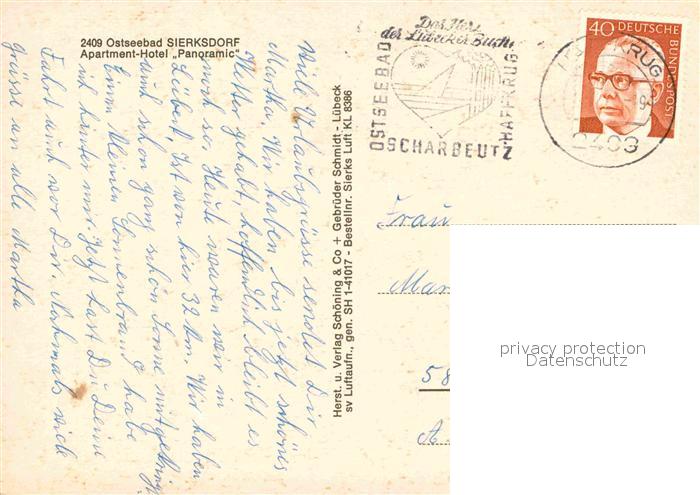 2409 Ostseebad SIERKSDORF
Apartment-Hotel „Panoramic"
Viele Urlaubsgrüsse sendet Dir
Martha. Wir haben bis jetzt schönes
Wetter gehabt, hoffentlich bleibt es
noch so. Heute waren wir in
Lübeck. Ist von hier 32 km. Wir haben
auch schon ganz schön Sonne mitgekriegt.
Einen kleinen Sonnenbrand habe
ich hinter mir. Jetzt hast Du Deine
Fahrt auch vor Dir. Nochmals viele
Grüsse an alle Martha
Herst. u. Verlag Schöning & Co + Gebrüder Schmidt - Lübeck
sv Luftaufn., gen. SH 1-41017 - Bestellnr. Sierks Luft KL 8386
Das Herz
der Lübecker Bucht
OSTSEEBAD
SCHARBEUTZ
HAFFKRUG
40 DEUTSCHE
BUNDESPOST
KRUG
2409
Frau
Mar
58
privacy protection
Datenschutz